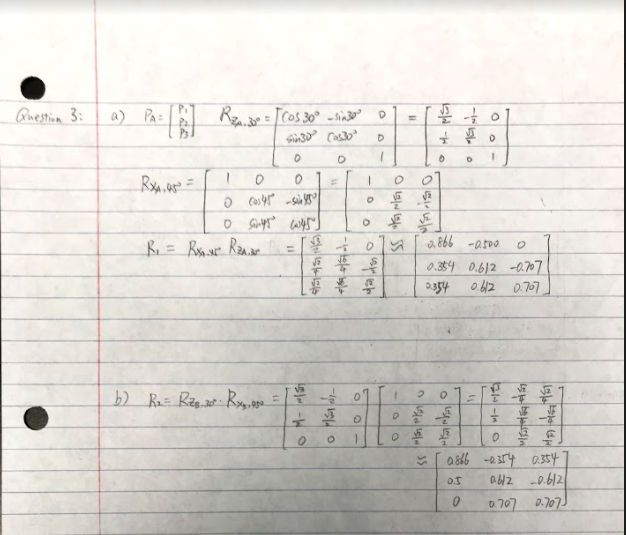 Question 3: a) P_A = [P₁; P₂; P₃] R_{Z_A,30°} = [cos30° -sin30° 0; sin30° cos30° 0; 0 0 1] = [√3/2 -1/2 0; 1/2 √3/2 0; 0 0 1]
R_{X_A,45°} = [1 0 0; 0 cos45° -sin45°; 0 sin45° cos45°] = [1 0 0; 0 √2/2 -√2/2; 0 √2/2 √2/2]
R₁ = R_{X_A,45°} R_{Z_A,30°} = [√3/2 -1/2 0; √2/4 √6/4 -√2/2; √2/4 √6/4 √2/2] ≈ [0.866 -0.500 0; 0.354 0.612 -0.707; 0.354 0.612 0.707]
b) R₂ = R_{Z_B,30°} · R_{X_B,45°} = [√3/2 -1/2 0; 1/2 √3/2 0; 0 0 1] [1 0 0; 0 √2/2 -√2/2; 0 √2/2 √2/2] = [√3/2 -√2/4 √2/4; 1/2 √6/4 -√6/4; 0 √2/2 √2/2]
≈ [0.866 -0.354 0.354; 0.5 0.612 -0.612; 0 0.707 0.707]